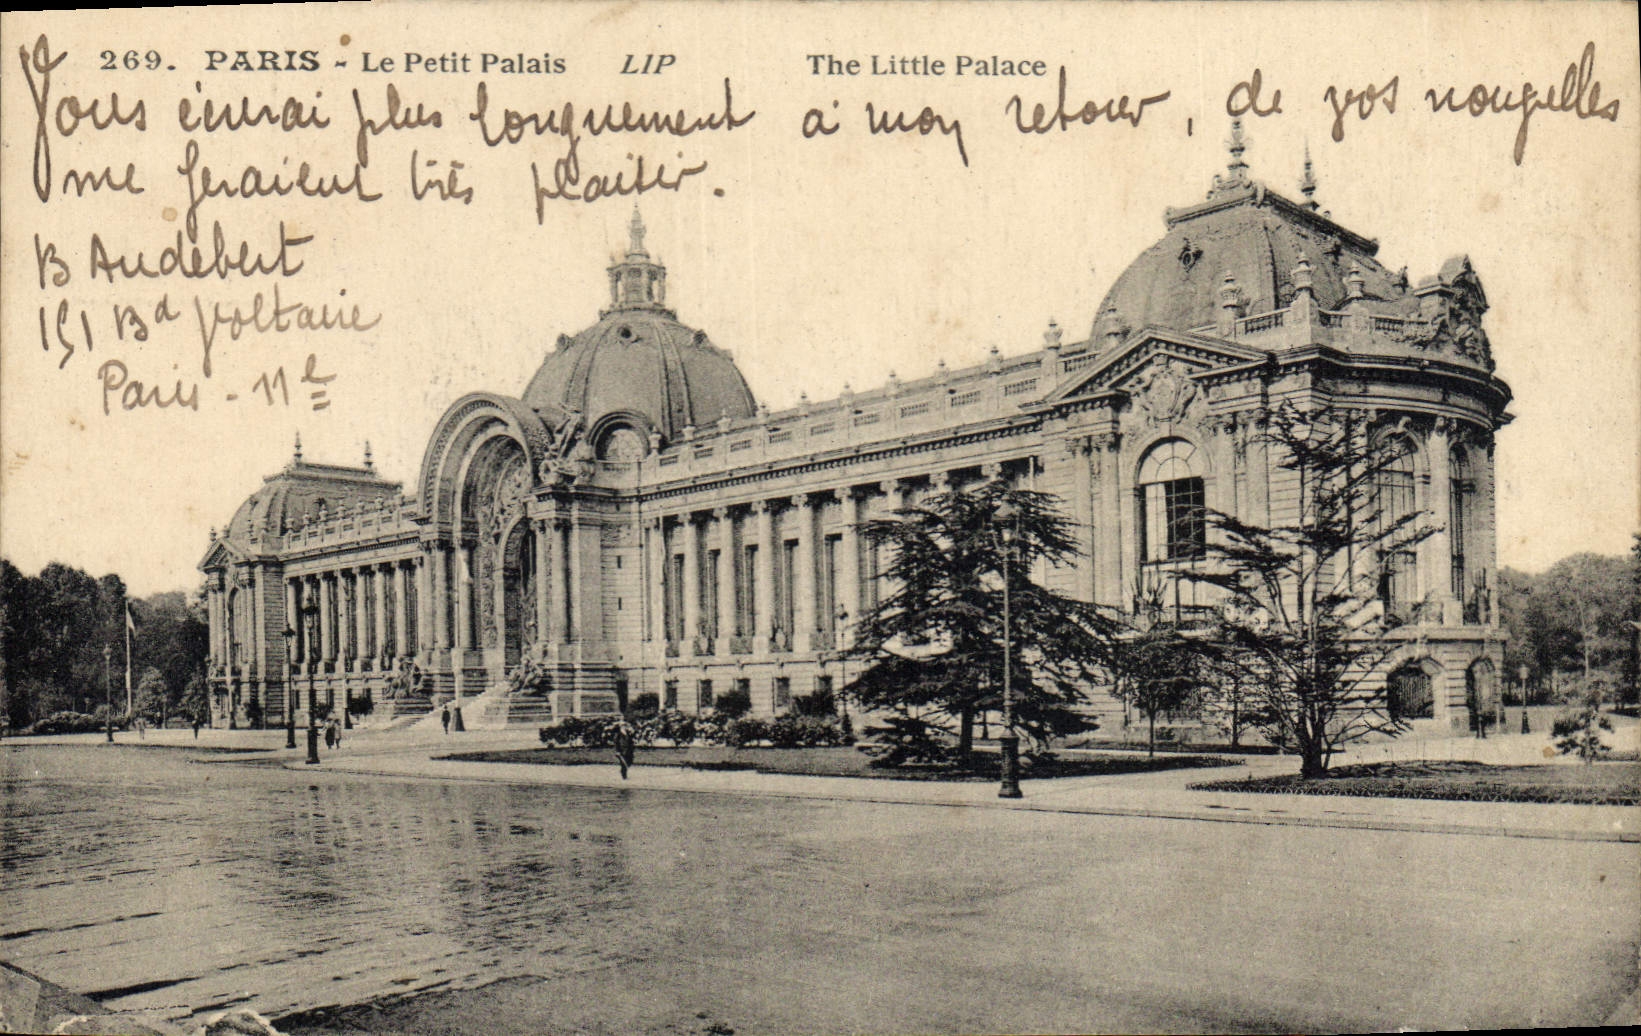 269. PARIS - Le Petit Palais LIP The Little Palace
Je
Vous écrirai plus longuement à mon retour, de vos nouvelles
me feraient très plaisir.
B Audebert
151 Bd Voltaire
Paris - 11e